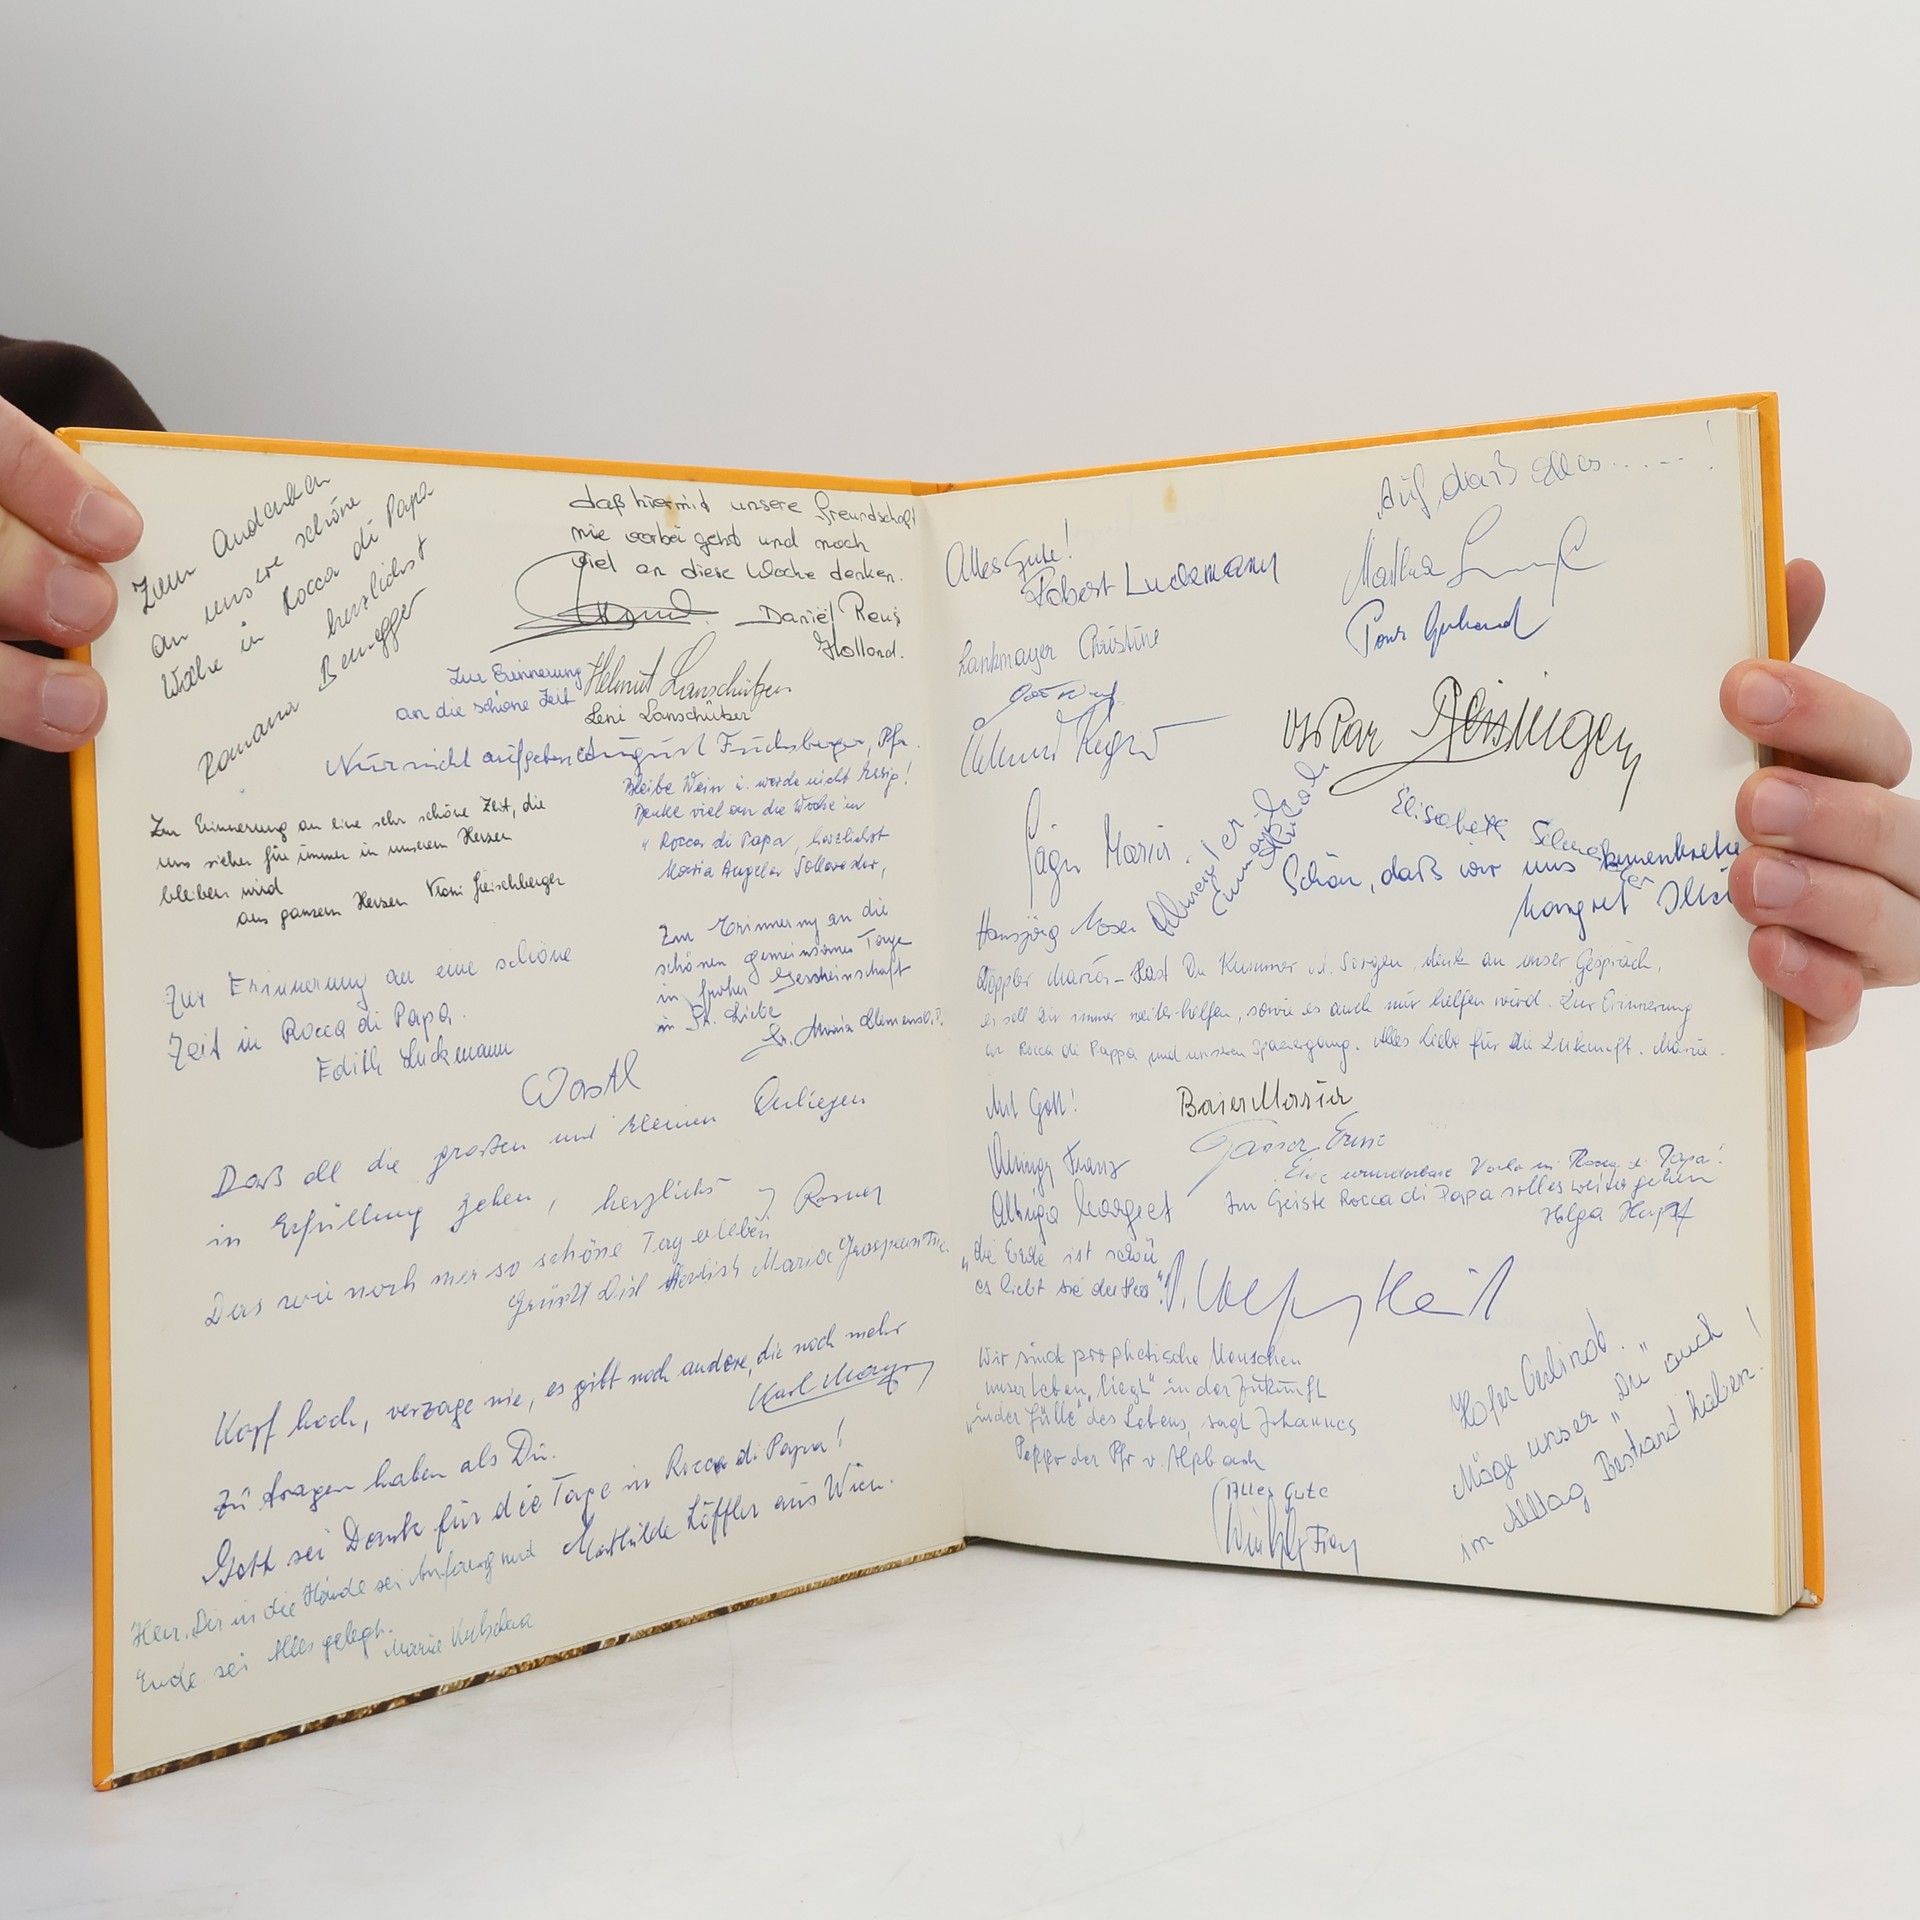 Zum Andenken
an unsere schöne
Woche in Rocca di Papa
herzlichst
Romana Bernegger
daß hiermit unsere Freundschaft
nie vorbei geht und noch
viel an diese Woche denken.
Daniël Reus
Holland.
Zur Erinnerung
an die schöne Zeit
Helmut Lanschützer
Leni Lanschützer
Nur nicht aufgeben August Fuchsberger, Pfr.
Bleibe Wein u. werde nicht Essig!
Denke viel an die Woche in
" Rocca di Papa, herzlichst
Maria Angela
Zur Erinnerung an eine sehr schöne Zeit, die
uns sicher für immer in unserem Herzen
bleiben wird
aus ganzem Herzen
Zur Erinnerung an die
schönen gemeinsamen Tage
in froher Gemeinschaft
in Liebe
Sr. Maria Clemens O.P.
Zur Erinnerung an eine schöne
Zeit in Rocca di Papa.
Edith Luckmann
Wastl
Daß all die großen und kleinen Anliegen
in Erfüllung gehen, herzlichst Rosner
Das wir noch mer so schöne Tag erleben
Grüßt Dich Herlich Maria
Kopf hoch, verzage nie, es gibt noch andere, die noch mehr
zu tragen haben als Du.
Karl Mayr
Gott sei Dank für die Tage in Rocca di Papa!
Mathilde Löffler aus Wien.
Herr, Dir in die Hände sei Anfang und
Ende sei Alles gelegt.
Marie
Auf, daß alles ......!
Alles Gute!
Robert Luckmann
Martha
Lankmayer Christine
Gerhard
Oskar
Maria
Elisabeth
Schön, daß wir uns kennenlernten
Margret
Hansjörg Moser
Döppler Maria - Hast Du Kummer od. Sorgen, denk an unser Gespräch,
es soll Dir immer weiterhelfen, sowie es auch mir helfen wird. Zur Erinnerung
an Rocca di Pappa und unseren Spaziergang. Alles Liebe für die Zukunft. Maria.
Mit Gott!
Baier Maria
Franz
Ganser Ernst
Eine wunderbare Woche in Rocca di Papa!
Im Geiste Rocca di Papa solles weiter gehen
Helga Hupf
Margret
"die Erde ist schön
es liebt sie der Herr"
Wir sind prophetische Menschen
unser Leben "liegt" in der Zukunft
"in der Fülle" des Lebens, sagt Johannes
Pepper der Pfr v. Alpbach
Alles Gute
Hofer Gerlinde.
Möge unser "Du" auch
im Alltag Bestand haben!